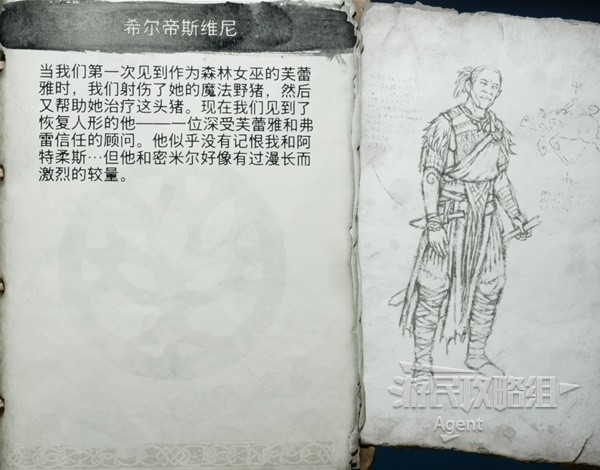 希尔帝斯维尼
当我们第一次见到作为森林女巫的芙蕾
雅时，我们射伤了她的魔法野猪，然后
又帮助她治疗这头猪。现在我们见到了
恢复人形的他———一位深受芙蕾雅和弗
雷信任的顾问。他似乎没有记恨我和阿
特柔斯…但他和密米尔好像有过漫长而
激烈的较量。
游民攻略组
Agent